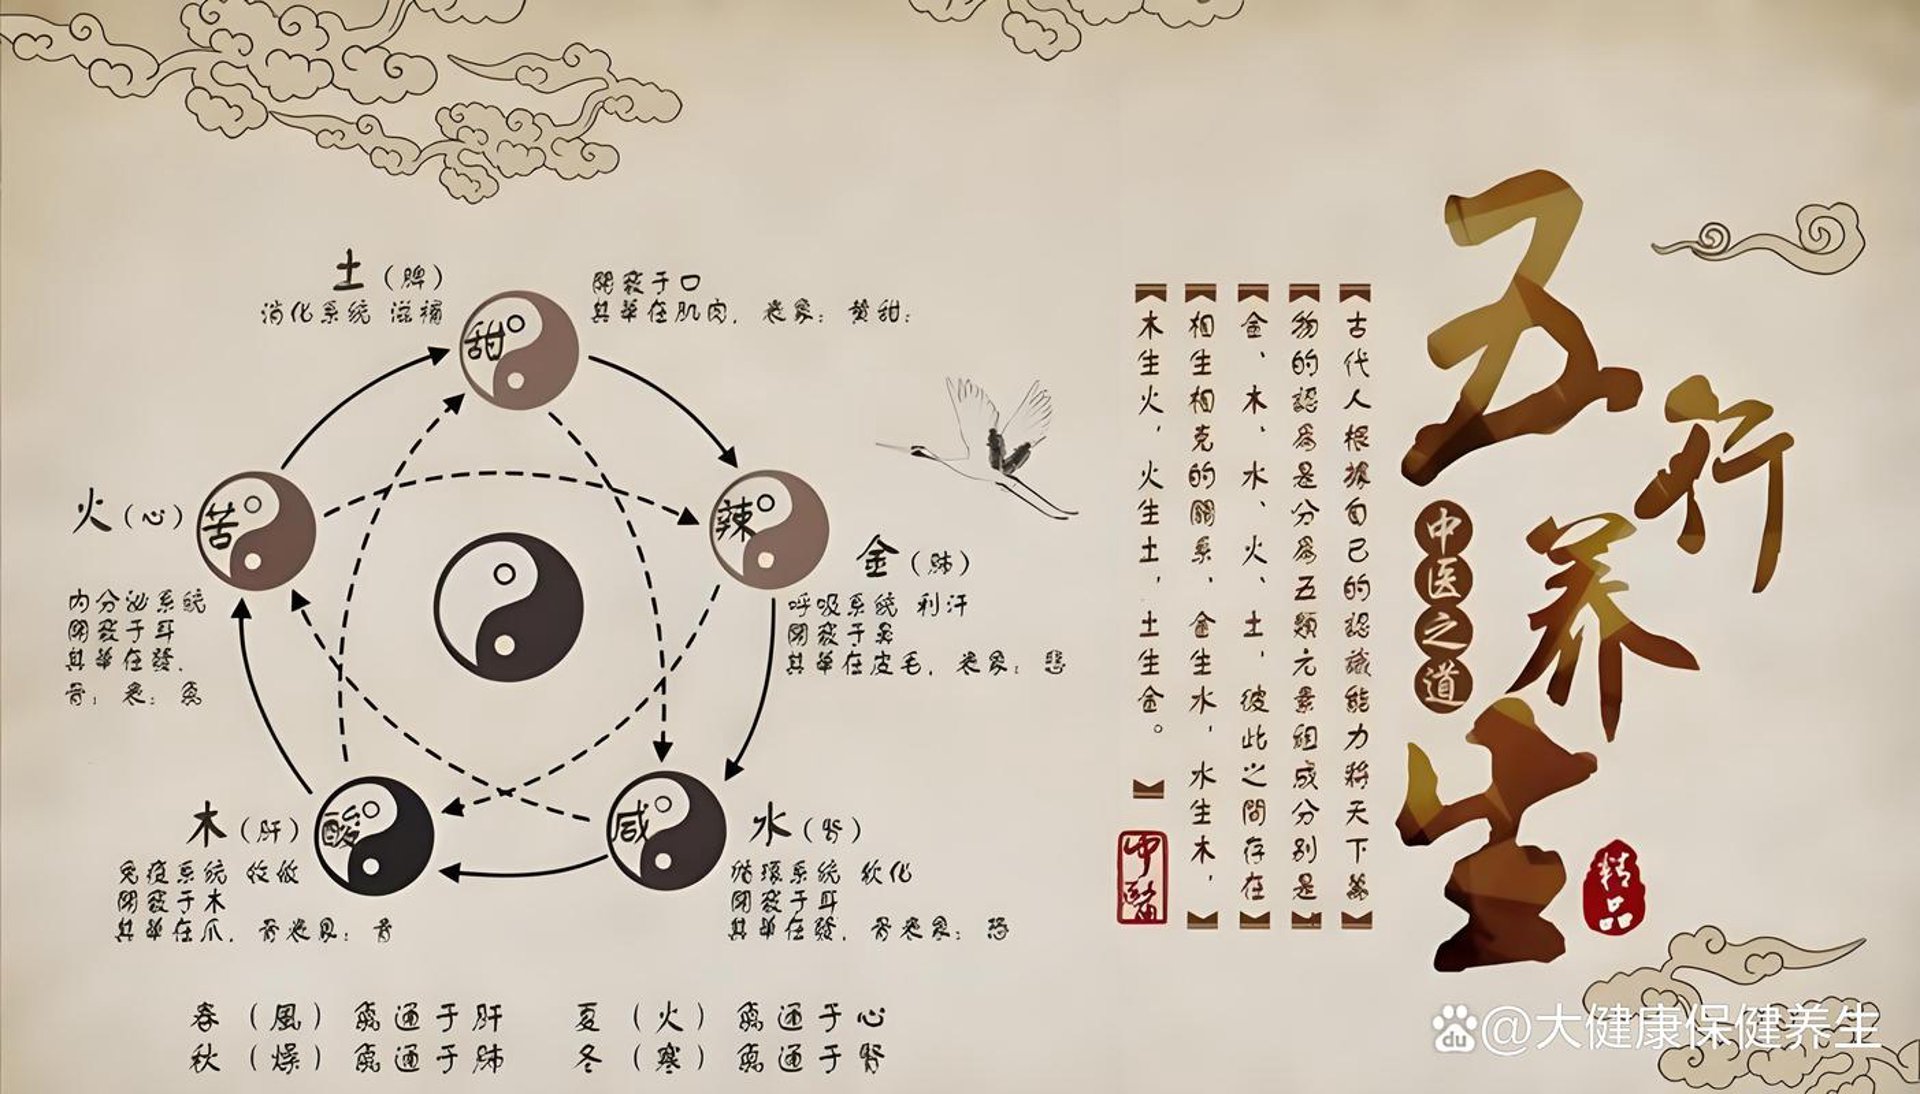 五行养生
中医之道
精品
古代人根據自己的認識能力將天下萬
物的認爲是分爲五類元素組成分别是
金、木、水、火、土，彼此之間存在
相生相克的關系、金生水，水生木，
木生火，火生土，土生金。
中醫
土（脾）
消化系統 滋補
甜
開竅于口
其華在肌肉，
黄甜：
火（心）
苦
内分泌系統
開竅于耳
其華在發，
辣
金（肺）
呼吸系統 利汗
開竅于鼻
其華在皮毛，
悲
木（肝）
酸
免疫系統 收敛
開竅于木
其華在爪，
咸
水（腎）
循環系統 软化
開竅于耳
其華在發，
恐
春（風）氣通于肝 夏（火）氣通于心
秋（燥）氣通于肺 冬（寒）氣通于腎
du @大健康保健养生